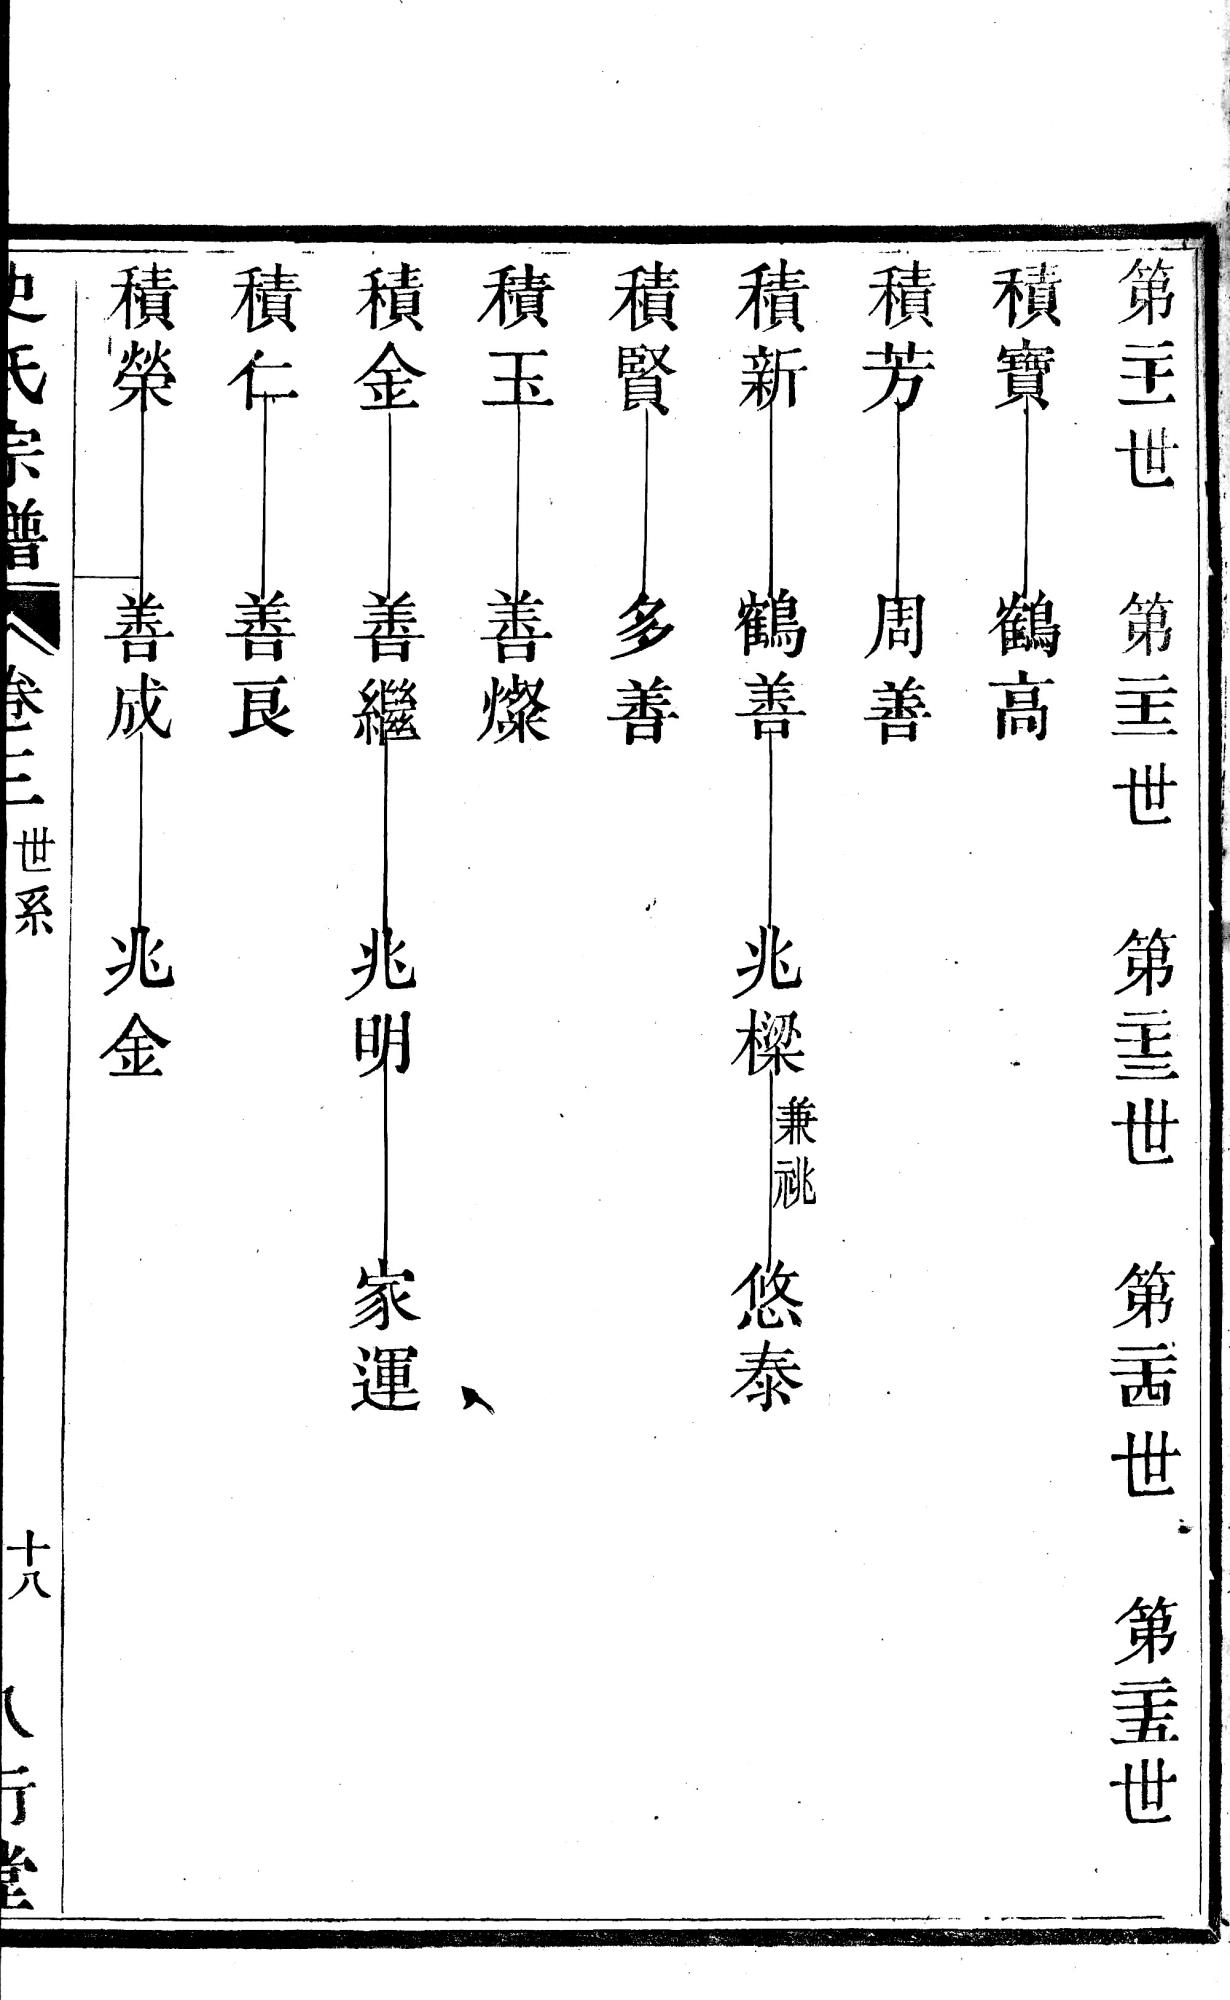 第二十一世 第二十二世 第二十三世 第二十四世 第二十五世
積寶 鶴高
積芳 周善
積新 鶴善 兆樑 兼祧 悠泰
積賢 多善
積玉 善燦
積金 善繼 兆明 家運
積仁 善良
積榮 善成 兆金
史氏宗譜 卷三 世系 十八 八行堂